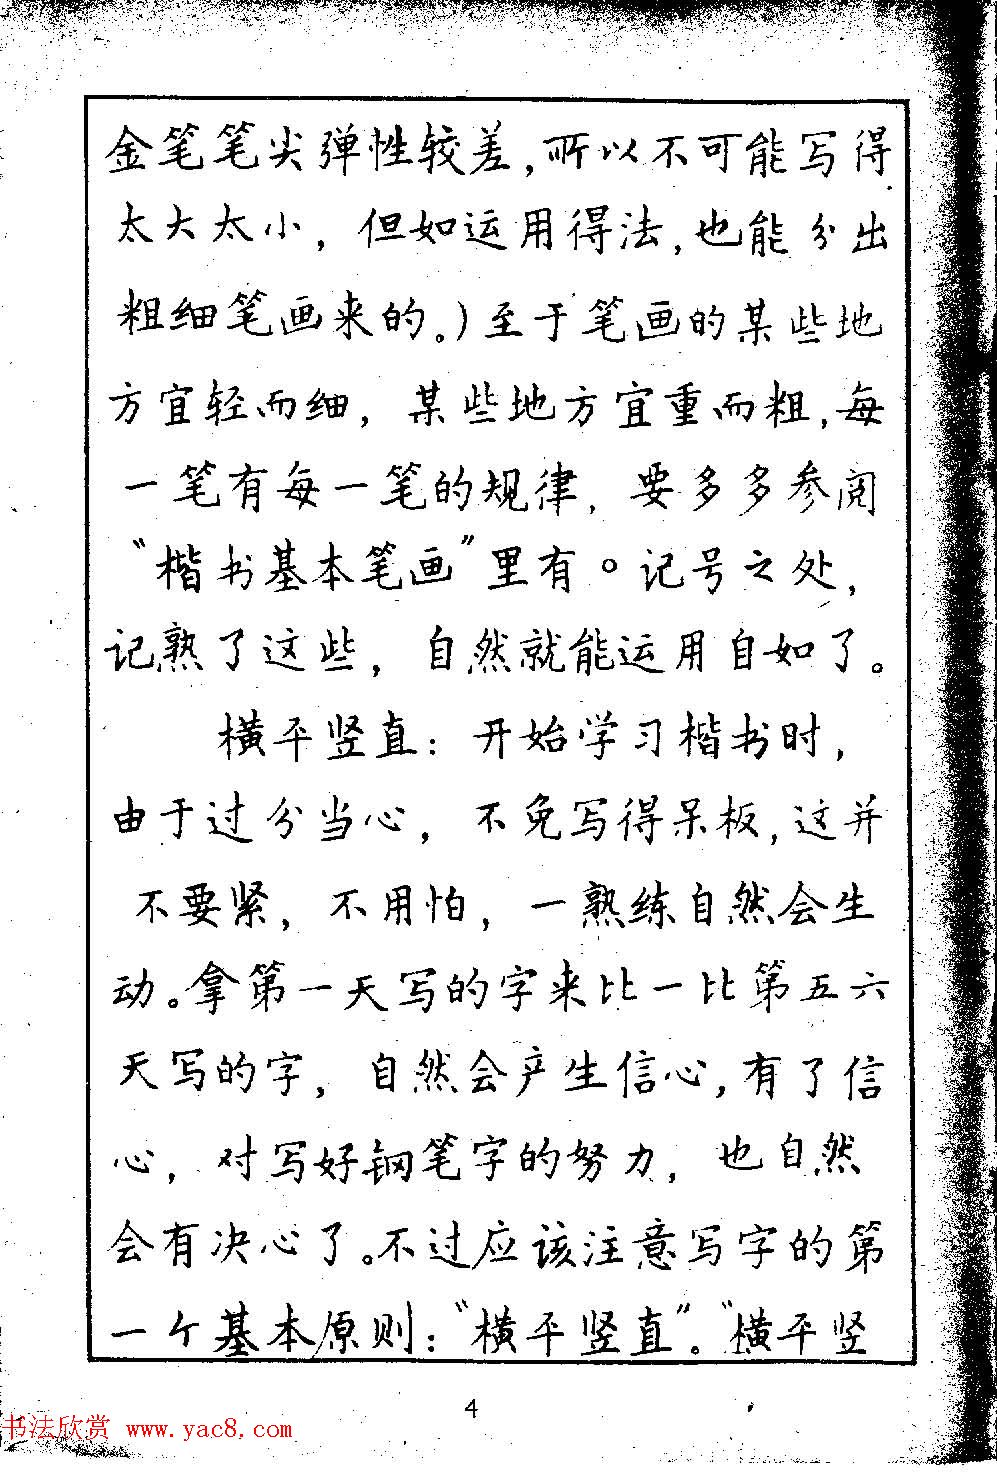 金笔笔尖弹性较差,所以不可能写得
太大太小，但如运用得法,也能分出
粗细笔画来的。)至于笔画的某些地
方宜轻而细，某些地方宜重而粗,每
一笔有每一笔的规律，要多多参阅
“楷书基本笔画”里有○记号之处，
记熟了这些，自然就能运用自如了。
横平竖直：开始学习楷书时，
由于过分当心，不免写得呆板,这并
不要紧，不用怕，一熟练自然会生
动。拿第一天写的字来比一比第五六
天写的字，自然会产生信心,有了信
心，对写好钢笔字的努力，也自然
会有决心了。不过应该注意写字的第
一个基本原则：“横平竖直”。“横平竖
4
书法欣赏 www.yac8.com